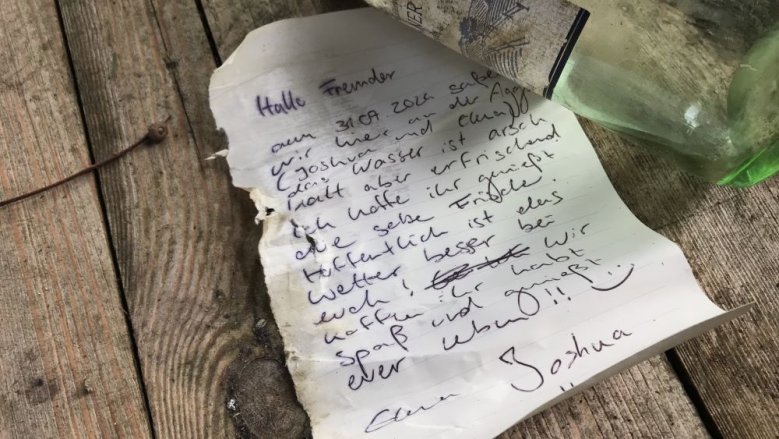 ER
Hallo Fremder
am 31.07.2020 saßen
wir hier an der Agg
(Joshua und Elena)
das Wasser ist arsch
kalt aber erfrischend
ich hoffe ihr genießt
die selbe Frische.
Hoffentlich ist das
wetter besser bei
euch! Wir
hoffen ihr habt
spaß und genießt
euer leben!!! :)
Elena Joshua